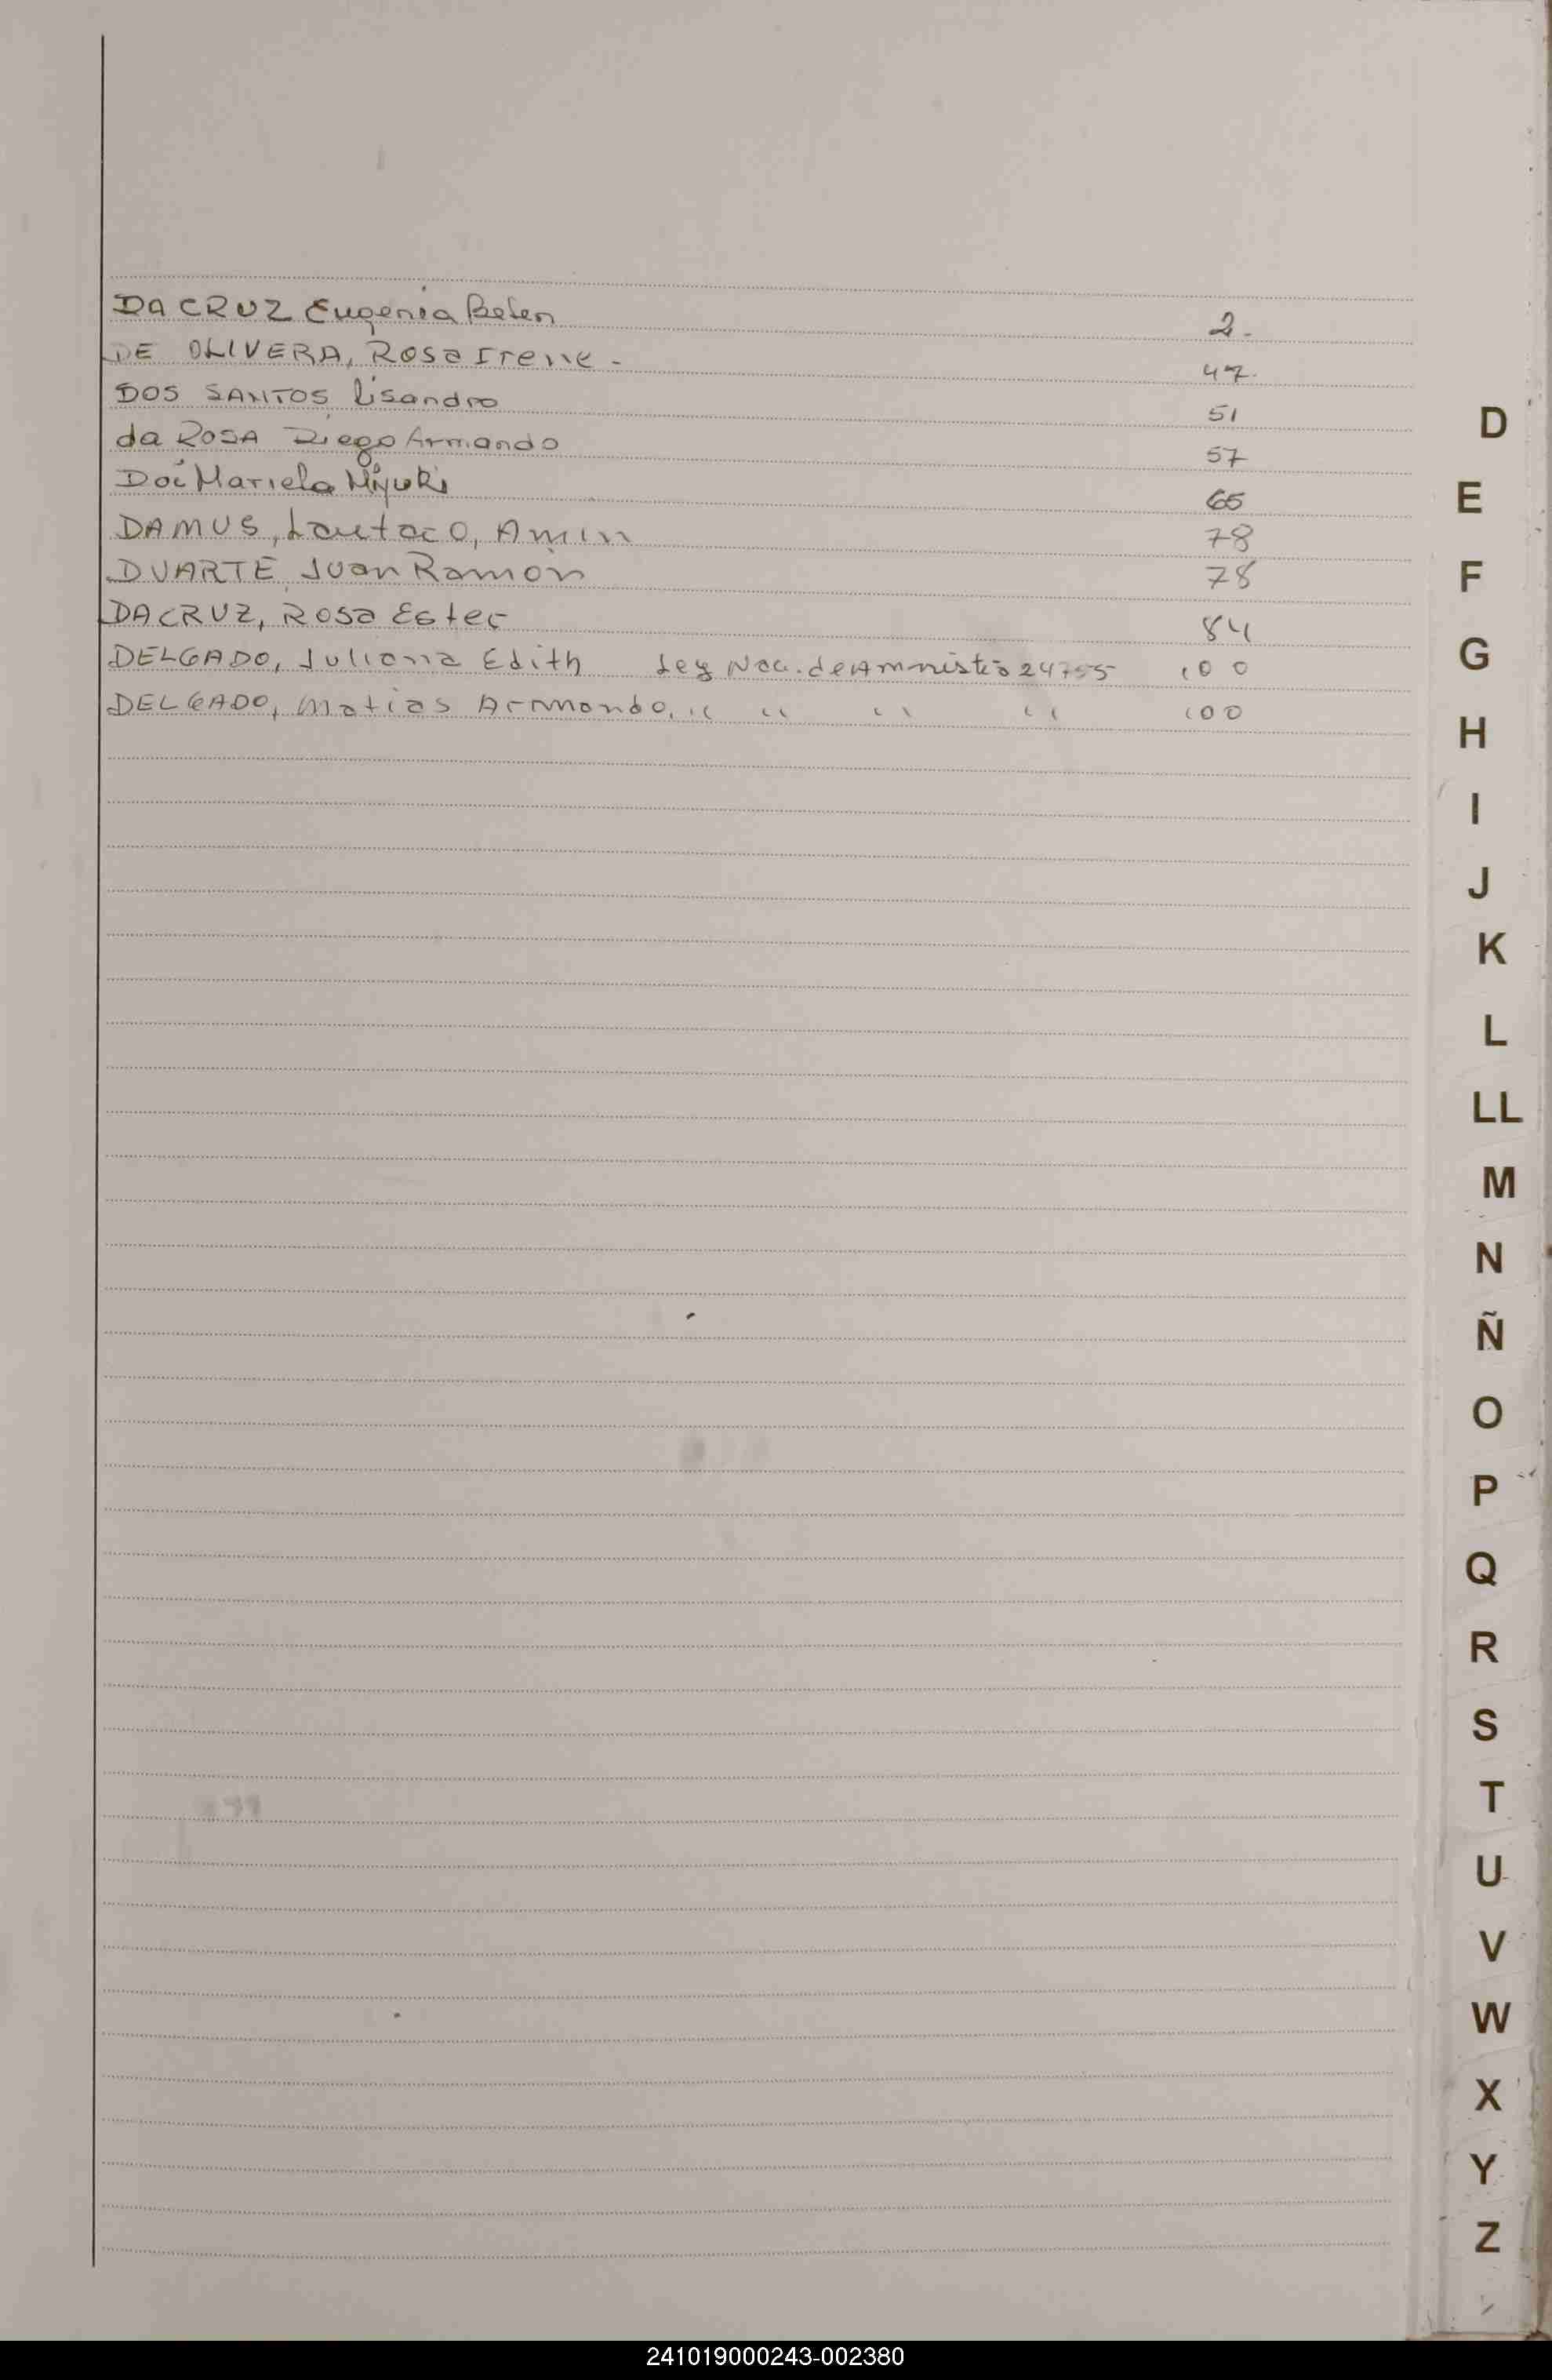 DA CRUZ Eugenia Belen 2.
DE OLIVERA, Rosa Irene - 47.
DOS SANTOS Lisandro 51
da ROSA Diego Armando 57
D
Doi Mariela Miyuki 65
E
DAMUS, Lautaro, Amin 78
DUARTE Juan Ramón 78
F
DACRUZ, Rosa Ester 84
DELGADO, Juliana Edith Ley Nac. de Amnistia 24755 100
G
DELGADO, Matias Armando, " " " " 100
H
I
J
K
L
LL
M
N
Ñ
O
P
Q
R
S
T
U
V
W
X
Y
Z
241019000243-002380